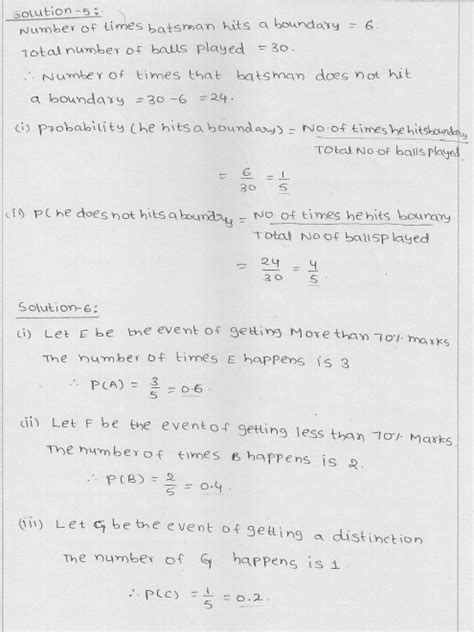 Solution-5:
Number of times batsman hits a boundary = 6.
Total number of balls played = 30.
∴ Number of times that batsman does not hit
a boundary = 30 - 6 = 24.
(i) Probability (he hits a boundary) = No. of times he hits boundary / Total No. of balls played
= 6/30 = 1/5
(ii) P( he does not hits a boundary = No of times he hits bounary / Total No of balls played
= 24/30 = 4/5
Solution-6:
(i) Let E be the event of getting More than 70% marks
The number of times E happens is 3
∴ P(A) = 3/5 = 0.6.
(ii) Let F be the event of getting less than 70% Marks.
The number of times B happens is 2.
∴ P(B) = 2/5 = 0.4.
(iii) Let G be the event of getting a distinction
The number of G happens is 1.
∴ P(C) = 1/5 = 0.2.